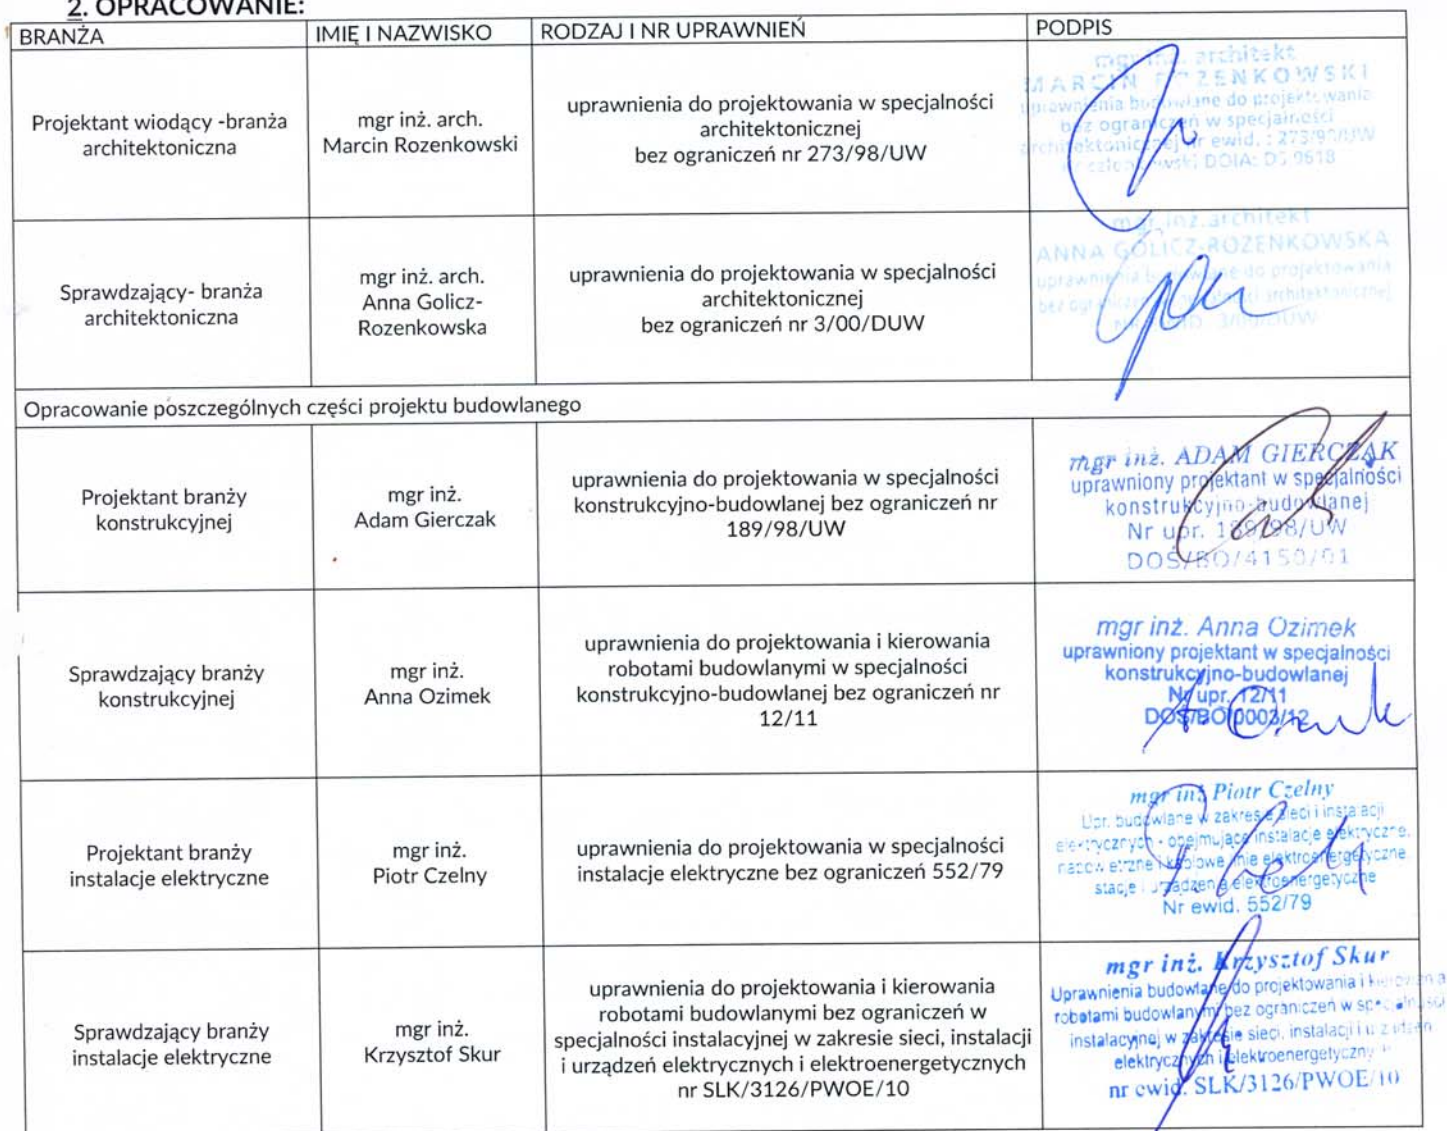 2. OPRACOWANIE:
BRANŻA IMIĘ I NAZWISKO RODZAJ I NR UPRAWNIEŃ PODPIS
Projektant wiodący -branża
architektoniczna
mgr inż. arch.
Marcin Rozenkowski
uprawnienia do projektowania w specjalności
architektonicznej
bez ograniczeń nr 273/98/UW
mgr inż. architekt
MARCIN ROZENKOWSKI
uprawnienia budowlane do projektowania
bez ograniczeń w specjalności
architektonicznej nr ewid. : 273/98/UW
DOIA: DS 0618
Sprawdzający- branża
architektoniczna
mgr inż. arch.
Anna Golicz-
Rozenkowska
uprawnienia do projektowania w specjalności
architektonicznej
bez ograniczeń nr 3/00/DUW
mgr inż.architekt
ANNA GOLICZ-ROZENKOWSKA
uprawnienia budowlane do projektowania
bez ograniczeń w specjalności architektonicznej
3/00/DUW
Opracowanie poszczególnych części projektu budowlanego
Projektant branży
konstrukcyjnej
mgr inż.
Adam Gierczak
uprawnienia do projektowania w specjalności
konstrukcyjno-budowlanej bez ograniczeń nr
189/98/UW
mgr inż. ADAM GIERCZAK
uprawniony projektant w specjalności
konstrukcyjno-budowlanej
Nr upr. 189/98/UW
DOŚ/BO/4150/01
Sprawdzający branży
konstrukcyjnej
mgr inż.
Anna Ozimek
uprawnienia do projektowania i kierowania
robotami budowlanymi w specjalności
konstrukcyjno-budowlanej bez ograniczeń nr
12/11
mgr inż. Anna Ozimek
uprawniony projektant w specjalności
konstrukcyjno-budowlanej
Nr upr. 12/11
DOŚ/BO/0003/12
Projektant branży
instalacje elektryczne
mgr inż.
Piotr Czelny
uprawnienia do projektowania w specjalności
instalacje elektryczne bez ograniczeń 552/79
mgr inż Piotr Czelny
Upr. budowlane w zakresie sieci i instalacji
elektrycznych - obejmujące instalacje elektryczne,
napowietrzne i kablowe linie elektroenergetyczne
stacje i urządzenia elektroenergetyczne
Nr ewid. 552/79
Sprawdzający branży
instalacje elektryczne
mgr inż.
Krzysztof Skur
uprawnienia do projektowania i kierowania
robotami budowlanymi bez ograniczeń w
specjalności instalacyjnej w zakresie sieci, instalacji
i urządzeń elektrycznych i elektroenergetycznych
nr SLK/3126/PWOE/10
mgr inż. Krzysztof Skur
Uprawnienia budowlane do projektowania i kierowania
robotami budowlanymi bez ograniczeń w specjalności
instalacyjnej w zakresie sieci, instalacji i urządzeń
elektrycznych i elektroenergetycznych
nr ewid. SLK/3126/PWOE/10